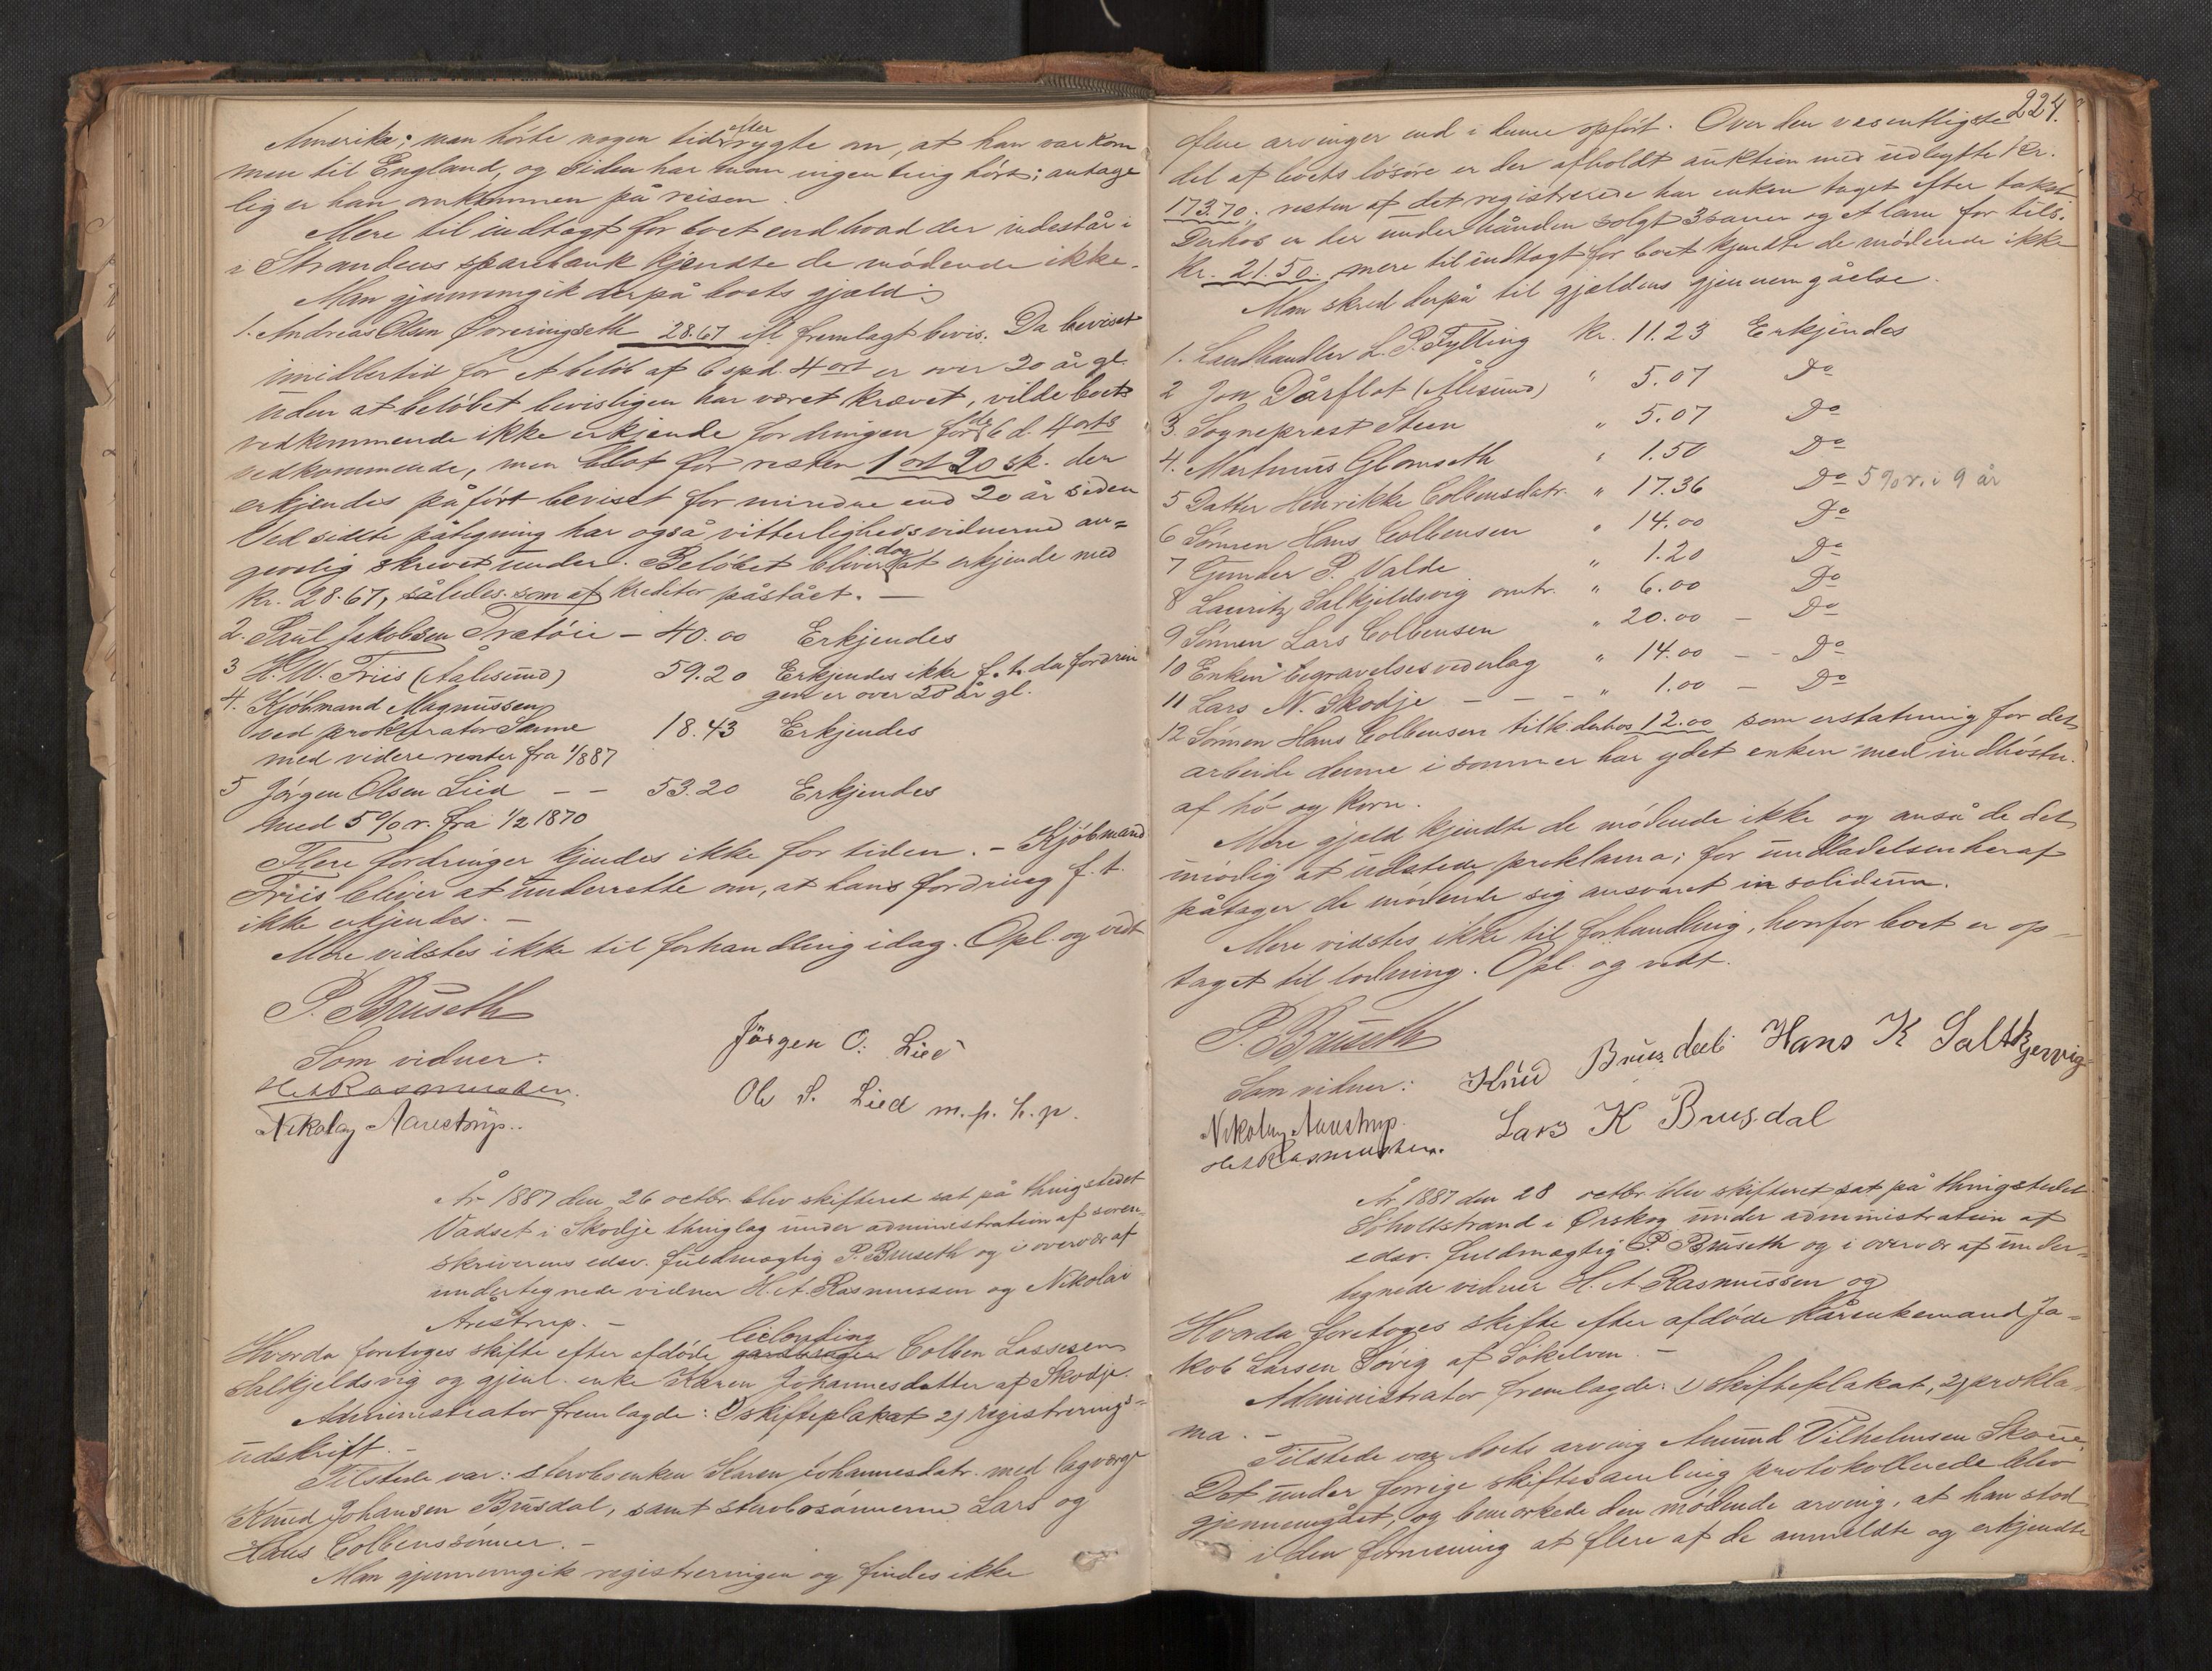 Amerika; man hörte nogen tid efter rygte om, at han var kom
men til England, og siden har man ingen ting hört; antage
lig er han omkommen på reisen.
Mere til indtægt for boet end hvad der indestår i
i Strandens sparebank kjendte de mödende ikke.
Man gjennemgik derpå boets gjæld:
1. Andreas Olsen 28.67 ifl fremlagt bevis. Da beviset
imidlertid for et belöb af 6 spd. 4 ort er over 20 år gl.
uden at belöbet bevisligen har været krævet, vilde boets
vedkommende ikke erkjende fordringen for de 6 d. 4 orts
vedkommende, men blot for resten 1 ort 20 sk. der
erkjendes påfört beviset for mindre end 20 år siden
Ved sidste påtegning har også vitterlighedsvidnerne an-
givelig skrevet under. Belöbet bliver dog at erkjende med
Kr. 28.67, således som af kreditor påstået. —
2. Paul Jakobsen Trætöie — 40.00 Erkjendes
3 H. W. Friis (Aalesund) 59.20 Erkjendes ikke f. t. da fordrin
gen er over 20 år gl.
4. Kjöbmand Magnussen
ved prokurator Sanne 18.43 Erkjendes
med videre renter fra 1/8 87
5 Jörgen Olsen Lied — — 53.20 Erkjendes
med 5 % r. fra 1/2 1870
Flere fordringer kjendes ikke for tiden. — Kjöbmand
Friis bliver at underrette om, at hans fordring f. t.
ikke erkjendes. —
Mere vidstes ikke til forhandling idag. Opl. og vedt
P. Bruseth
Som vidner:
H A Rasmussen.
Nikolay Aarestrup..
Jörgen O: Lied
Ole S. Lied m. p. h. p.
År 1887 den 26 octbr. blev skifteret sat på thingstedet
Vadset i Skodje thinglag under administration af soren-
skriverens edsv. fuldmægtig P. Bruseth og i overvær af
undertegnede vidner H. A. Rasmussen og Nikolai
Årestrup. —
Hvorda foretoges skifte efter afdöde gardbruger leilending Colben Lassesen
Salkjeldsvig og gjenl. enke Karen Johannesdatter af Skodje.
Administrator fremlagde: 1) skifteplakat 2) registrerings-
udskrift. —
Tilstede var: sterboenken Karen Johannesdatr. med lagværge
Knud Johansen Brusdal, samt sterbosönnerne Lars og
Hans Colbenssönner. —
Man gjennemgik registreringen og findes ikke
224.
flere arvinger end i denne opfört. Over den væsentligste
del af boets lösöre er der afholdt auktion med udbytte Kr.
173.70; resten af det registrerede har enken taget efter takst
Derhos er der underhånden solgt 3 sauer og et lam for tils.
Kr. 21.50. Mere til indtægt för boet kjendte de mödende ikke
Man skred derpå til gjældens gjennemgåelse.
1. Landhandler L. P. Fylling Kr. 11.23 Erkjendes
2 Jon Dårflot (Ålesund) " 5.07 Do
3. Sogneprest Steen " 5.07 Do
4. Martinus Glomseth " 1.50 Do
5 Datter Henrikke Colbensdatr. " 17.36 Do 5 % r. i 9 år
6 Sönnen Hans Colbensen " 14.00 Do
7 Gunder P. Valde " 1.20 Do
8 Lauritz Salkjeldsvig omtr. " 6.00 Do
9 Sönnen Lars Colbensen " 20.00 — Do
10 Enken begravelsesvederlag " 14.00 — — Do
11 Lars N. Skodje — — — " 1.00 — Do
12 Sönnen Hans Colbensen tilk. derhos 12.00 som erstatning for det
arbeide denne i sommer har ydet enken med indhöstn.
af hö og korn.
Mere gjæld kjendte de mödende ikke og anså de det
unödig at udstede proklama; for undladelsen heraf
påtager de mödende sig ansvaret in solidum.
Mere vidstes ikke til forhandling, hvorfor boet er op-
taget til lodning. Opl. og vedt.
P. Bruseth
Som vidner:
Nikolay Aarestrup.
H A Rasmussen.
Knud Brusdeli Hans K Saltkjervig
Lars K Brusdal
År 1887 den 28 octbr blev skifteret sat på thingstedet
Sjöholtstrand i Ørskog under administration af
edsv. fuldmægtig P. Bruseth og i overvær af under-
tegnede vidner H. A Rasmussen og
Hvorda foretoges skifte efter afdöde kårenkemand Ja-
kob Larsen Søvig af Sökelven. —
Administrator fremlagde: 1) skifteplakat, 2) prokla
ma. —
Tilstede var boets arving Amund Vilhelmsen Skoue.
Det under forrige skiftesamling protokollerede blev
gjennemgået, og bemærkede den mödende arving, at han stod
i den formening at flere af de anmeldte og erkjendte